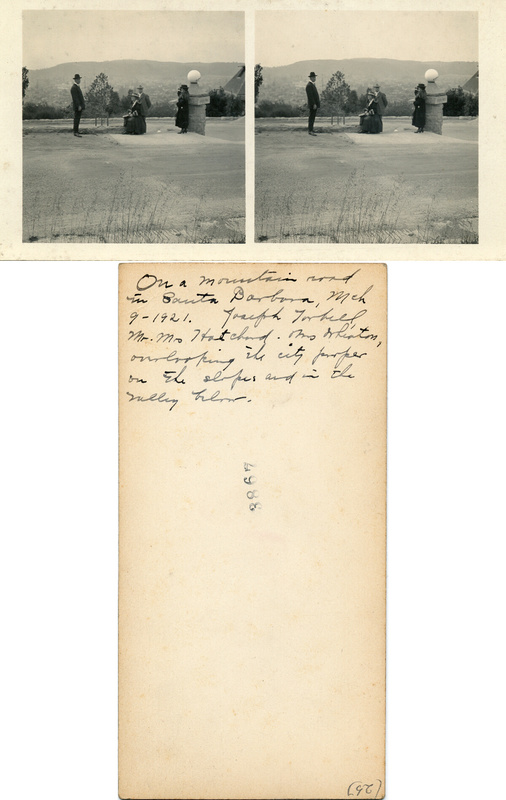 On a mountain road
in Santa Barbara, Mch
9-1921. Joseph Torbell,
Mr. Ms Hatchard. Ms Wheaton,
overlooking the city proper
on the slopes and in the
valley below.
3867
(26)